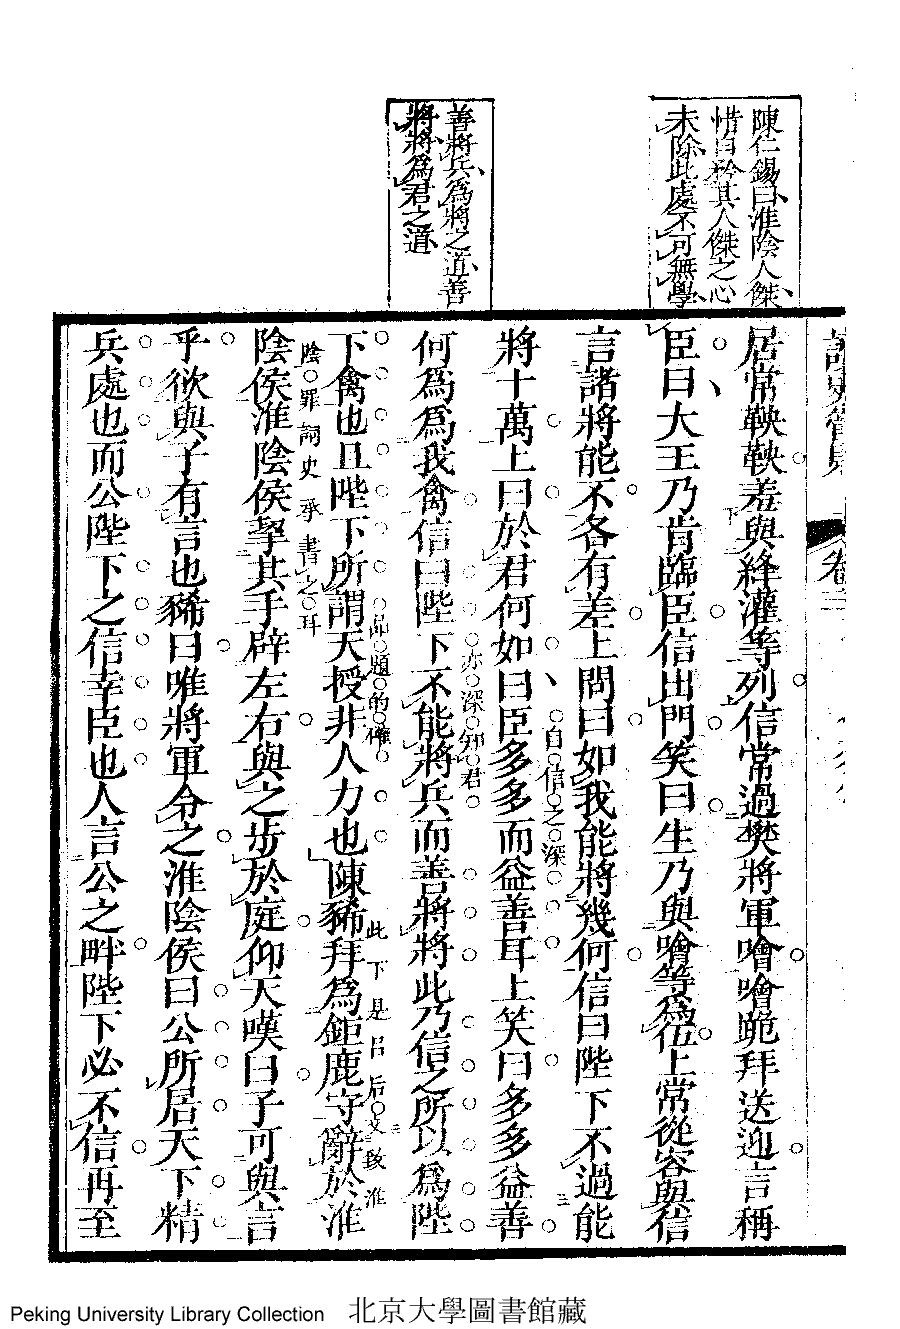 陳仁錫曰淮陰人傑
惜自矜其人傑之心
未除此處不可無學
善將兵爲將之道善
將將爲君之道
卷二
居常鞅鞅羞與絳灌等列信常過樊將軍噲噲跪拜送迎言稱
臣曰大王乃肯臨臣信出門笑曰生乃與噲等爲伍上常從容與信
言諸將能不各有差上問曰如我能將幾何信曰陛下不過能
自信之深
將十萬上曰於君何如曰臣多多而益善耳上笑曰多多益善
亦深知君
何爲爲我禽信曰陛下不能將兵而善將將此乃信之所以爲陛
品題的確
此下是呂后文致淮
下禽也且陛下所謂天授非人力也陳豨拜爲鉅鹿守辭於淮
陰罪詞史承書之耳
陰侯淮陰侯挈其手辟左右與之步於庭仰天嘆曰子可與言
乎欲與子有言也豨曰唯將軍令之淮陰侯曰公所居天下精
兵處也而公陛下之信幸臣也人言公之畔陛下必不信再至
Peking University Library Collection 北京大學圖書館藏